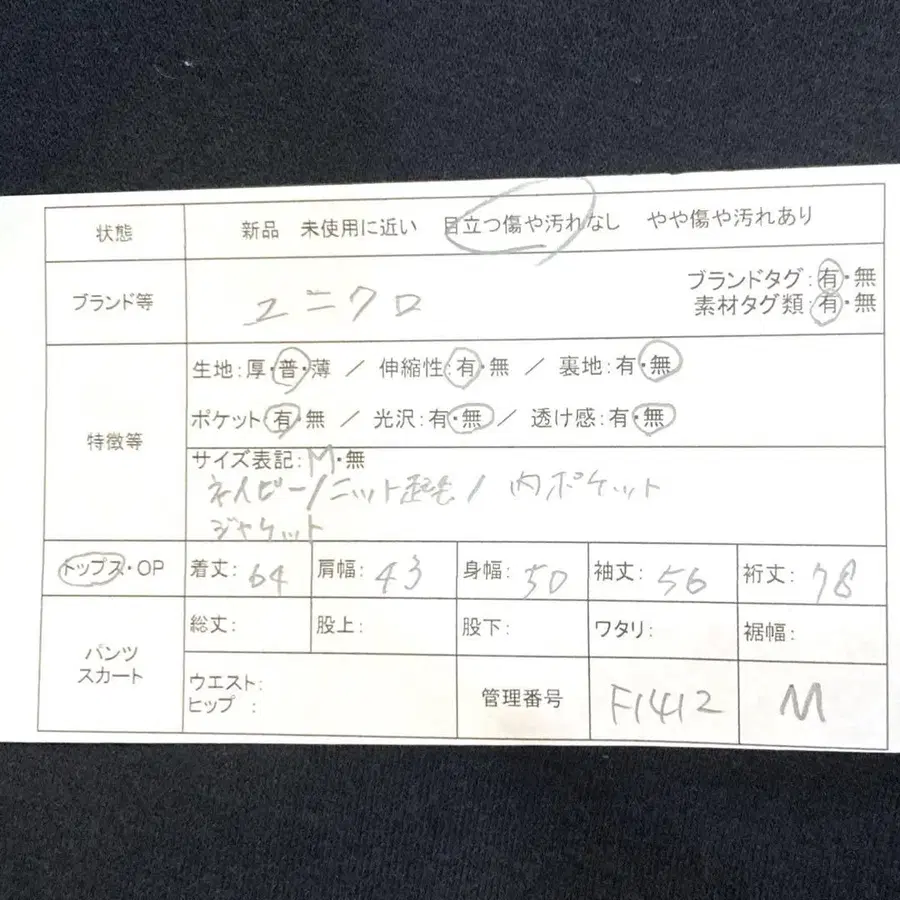 状態 新品 未使用に近い 目立つ傷や汚れなし やや傷や汚れあり
ブランド等 ユニクロ ブランドタグ:有・無
素材タグ類:有・無
特徴等 生地:厚・普・薄 / 伸縮性:有・無 / 裏地:有・無
ポケット有・無 / 光沢:有・無 / 透け感:有・無
サイズ表記:M・無
ネイビー/ニット起毛/内ポケット
ジャケット
トップス・OP 着丈:64 肩幅:43 身幅:50 袖丈:56 裄丈:78
パンツ
スカート
総丈: 股上: 股下: ワタリ: 裾幅:
ウエスト:
ヒップ :
管理番号 F1412 M